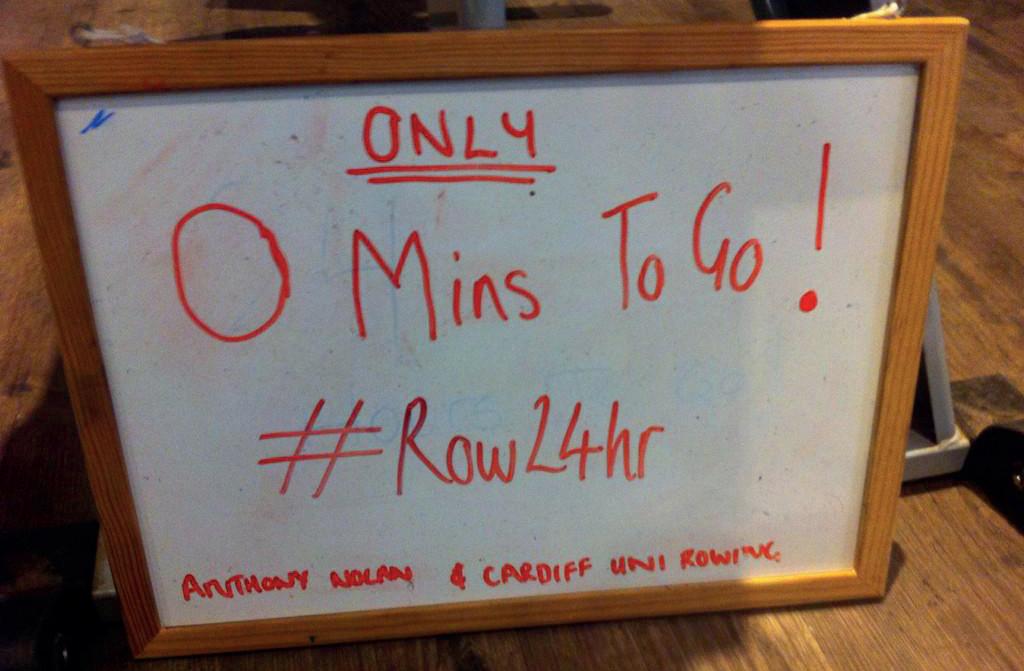 ONLY
0 Mins To Go!
#Row24hr
ANTHONY NOLAN & CARDIFF UNI ROWING